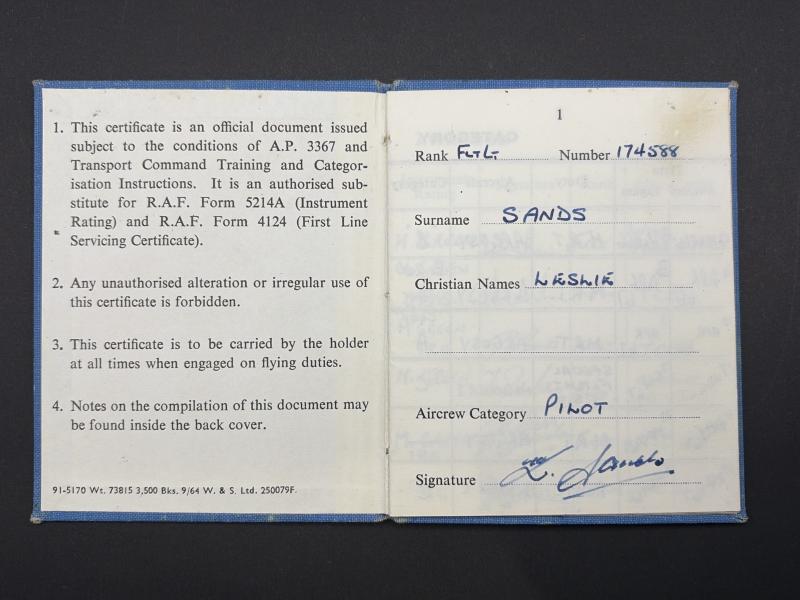 1. This certificate is an official document issued
subject to the conditions of A.P. 3367 and
Transport Command Training and Categor-
isation Instructions. It is an authorised sub-
stitute for R.A.F. Form 5214A (Instrument
Rating) and R.A.F. Form 4124 (First Line
Servicing Certificate).
2. Any unauthorised alteration or irregular use of
this certificate is forbidden.
3. This certificate is to be carried by the holder
at all times when engaged on flying duties.
4. Notes on the compilation of this document may
be found inside the back cover.
91-5170 Wt. 73815 3,500 Bks. 9/64 W. & S. Ltd. 250079F.
1
Rank FLT LT Number 174588
Surname SANDS
Christian Names LESLIE
Aircrew Category PILOT
Signature L. Sands